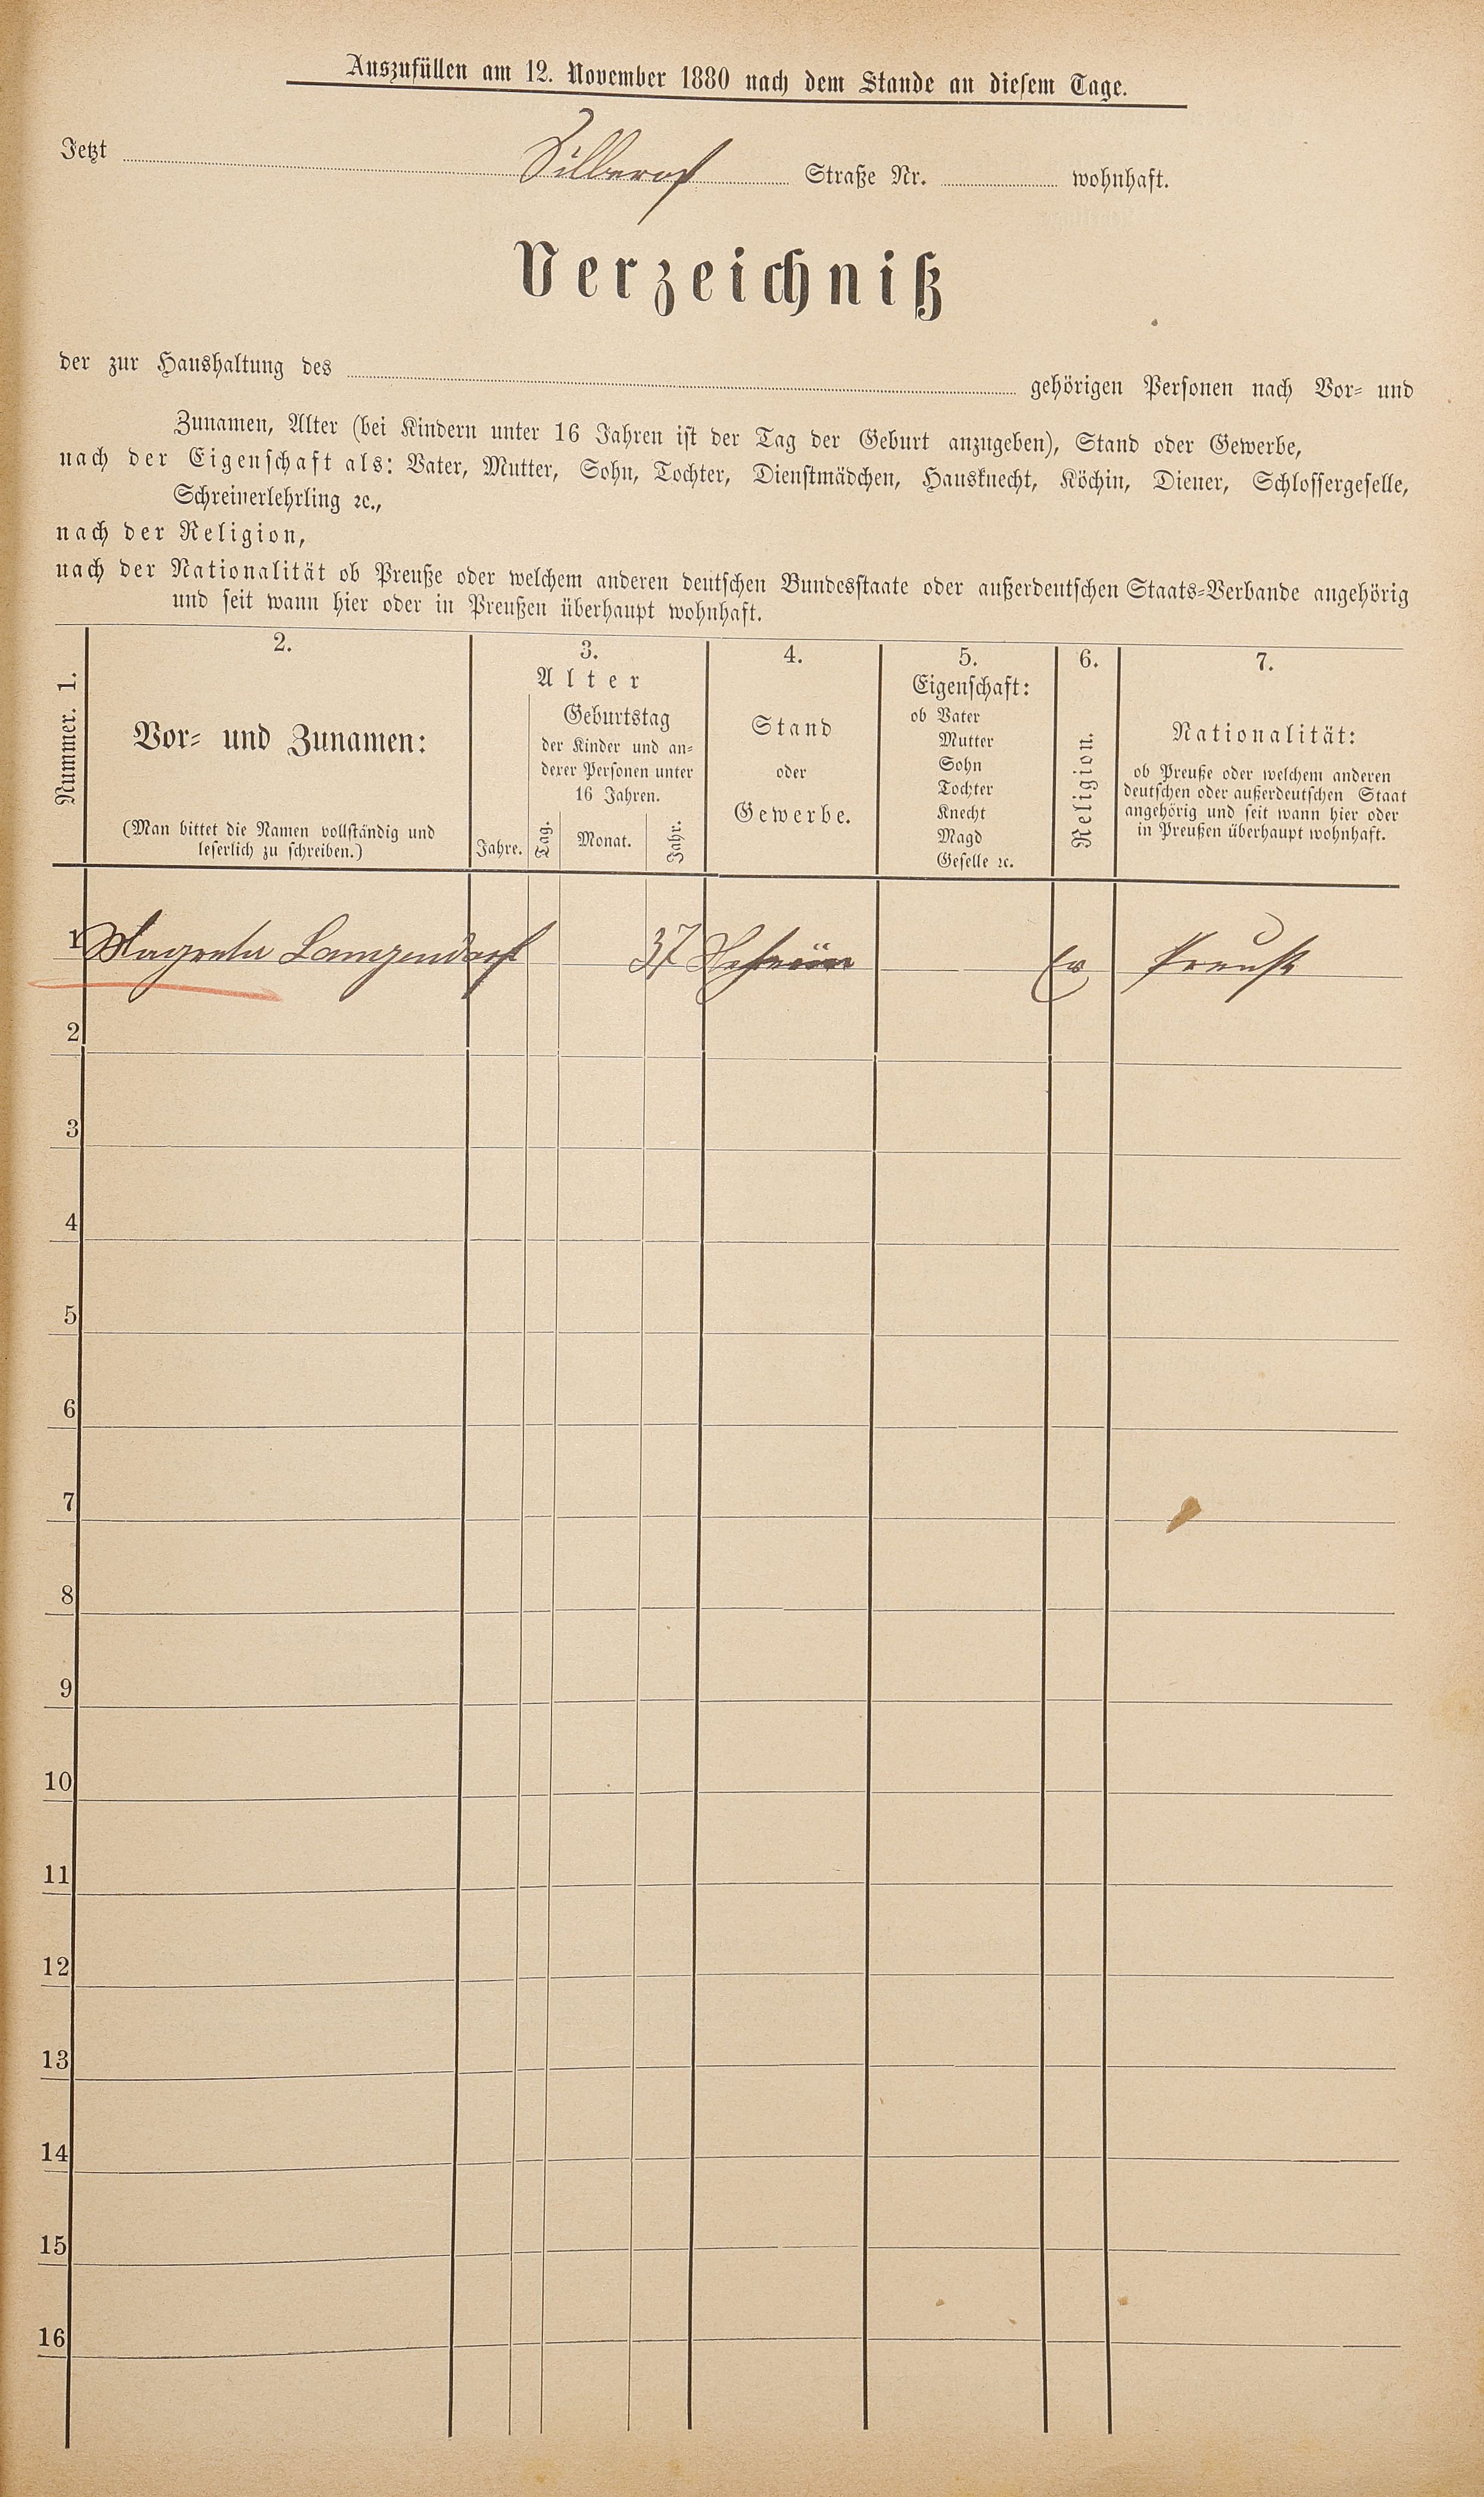 Auszufüllen am 12. November 1880 nach dem Stande an diesem Tage.
Jetzt Straße Nr. wohnhaft.
Verzeichniß
der zur Haushaltung des gehörigen Personen nach Vor- und
Zunamen, Alter (bei Kindern unter 16 Jahren ist der Tag der Geburt anzugeben), Stand oder Gewerbe,
nach der Eigenschaft als: Vater, Mutter, Sohn, Tochter, Dienstmädchen, Hausknecht, Köchin, Diener, Schlossergeselle,
Schreinerlehrling ꝛc.,
nach der Religion,
nach der Nationalität ob Preuße oder welchem anderen deutschen Bundesstaate oder außerdeutschen Staats-Verbande angehörig
und seit wann hier oder in Preußen überhaupt wohnhaft.
Nummer. 1.
2.
Vor- und Zunamen:
(Man bittet die Namen vollständig und
leserlich zu schreiben.)
3.
Alter
Jahre.
Geburtstag
der Kinder und an-
derer Personen unter
16 Jahren.
Tag.
Monat.
Jahr.
4.
Stand
oder
Gewerbe.
5.
Eigenschaft:
ob Vater
Mutter
Sohn
Tochter
Knecht
Magd
Geselle ꝛc.
6.
Religion.
7.
Nationalität:
ob Preuße oder welchem anderen
deutschen oder außerdeutschen Staat
angehörig und seit wann hier oder
in Preußen überhaupt wohnhaft.
1 Magreta Langendorf 37 Ev Preuße
2
3
4
5
6
7
8
9
10
11
12
13
14
15
16